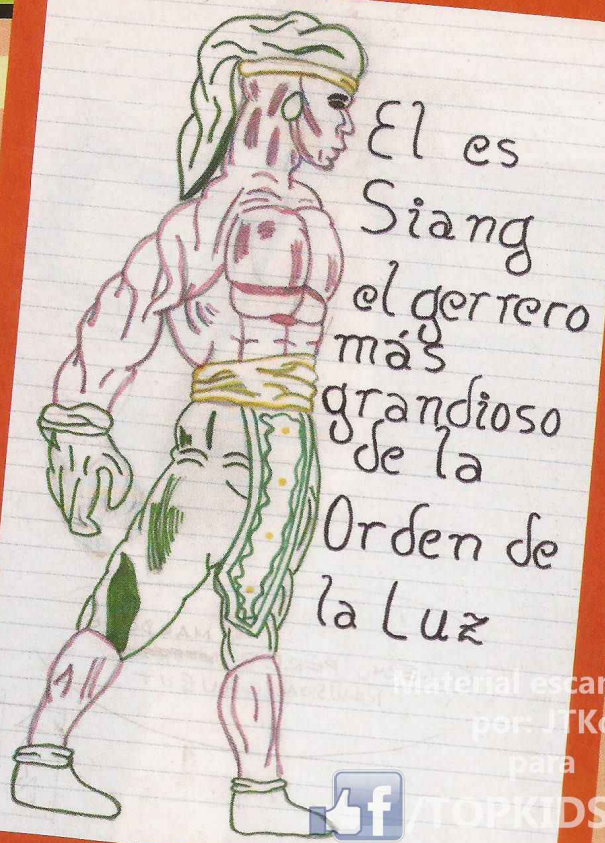 El es
Siang
el gerrero
más
grandioso
de la
Orden de
la Luz
Material escan
por: JTKd
para
f/TOPKIDS